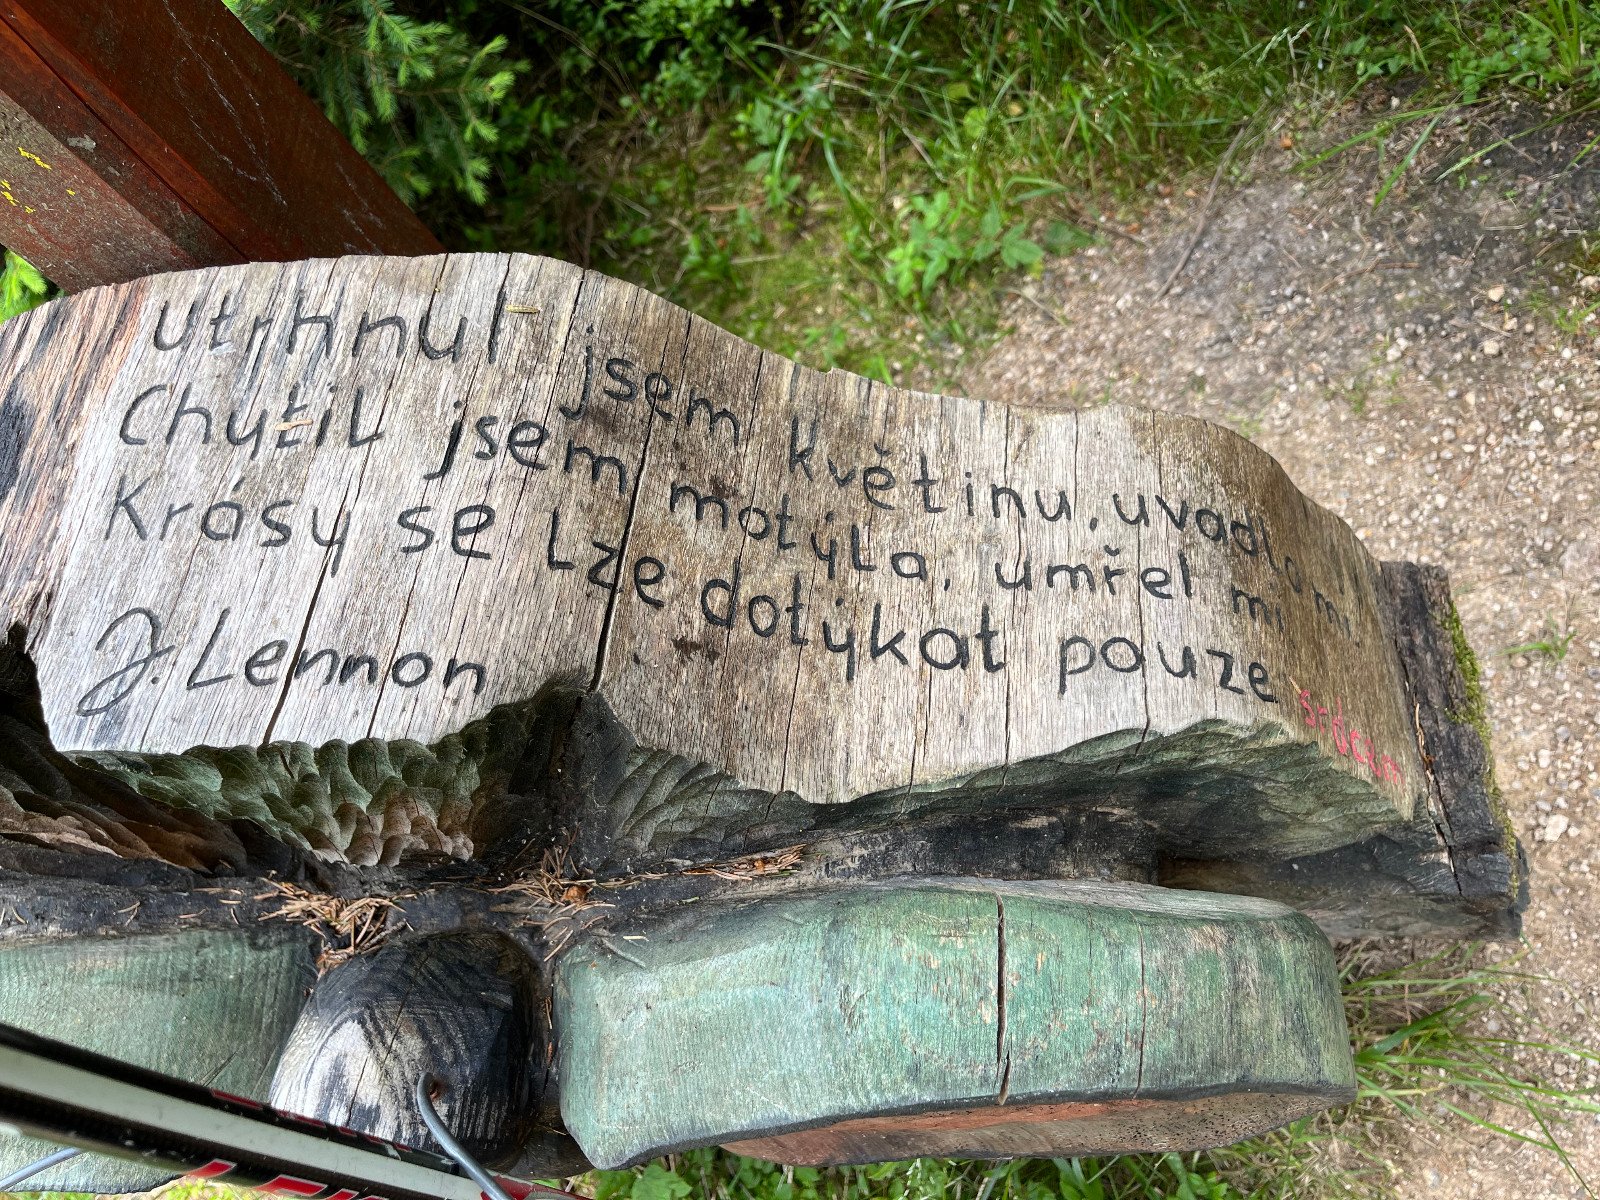 Utrhnul jsem květinu, uvadla mi
Chytil jsem motýla, umřel mi
Krásy se lze dotýkat pouze srdcem
J. Lennon